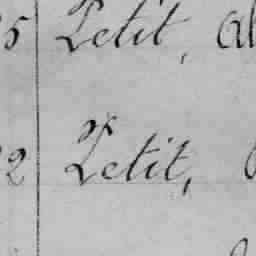 5 Petit, Al
2 Petit,